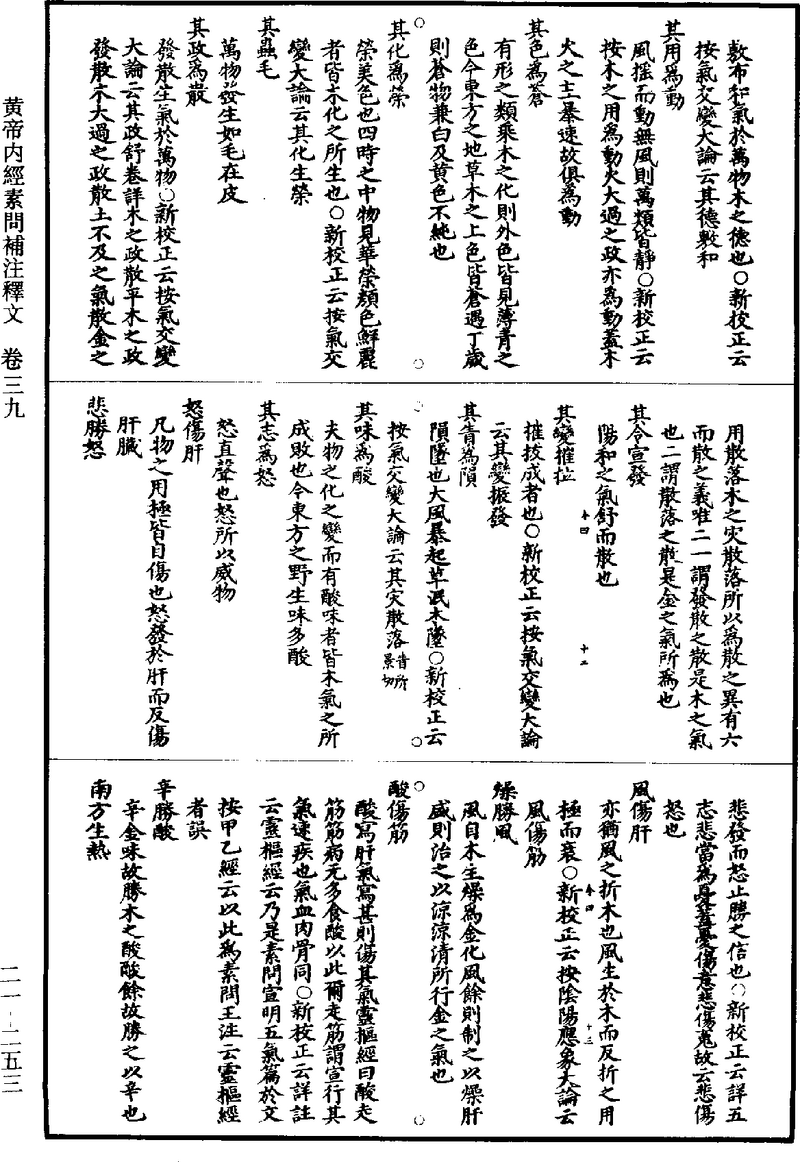 黄帝内經素問補注釋文　卷三九
二一－二五三
敷布和氣於萬物木之德也○新校正云
按氣交變大論云其德敷和
其用為動
風摇而動無風則萬類皆靜○新校正云
按木之用為動火大過之政亦為動蓋木
火之主暴速故俱為動
其色為蒼
有形之類乘木之化則外色皆見薄青之
色今東方之地草木之上色皆蒼遇丁歲
則蒼物兼白及黄色不純也
其化為榮
榮美色也四時之中物見華榮顏色鮮麗
者皆木化之所生也○新校正云按氣交
變大論云其化生榮
其蟲毛
萬物發生如毛在皮
其政為散
發散生氣於萬物○新校正云按氣交變
大論云其政舒卷詳木之政散平木之政
發散木大過之政散土不及之氣散金之
用散落木之灾散落所以為散之異有六
而散之義唯二一謂發散之散是木之氣
也二謂散落之散是金之氣所為也
其令宣發
陽和之氣舒而散也
其變摧拉
摧拉成者也○新校正云按氣交變大論
云其變振發
其眚為隕
隕墜也大風暴起草泯木墜○新校正云
按氣交變大論云其灾散落
其味為酸
夫物之化之變而有酸味者皆木氣之所
成敗也今東方之野生味多酸
其志為怒
怒直聲也怒所以威物
怒傷肝
凡物之用極皆自傷也怒發於肝而反傷
肝臟
悲勝怒
悲發而怒止勝之信也○新校正云詳五
志悲當為憂蓋憂傷意悲傷魂故云悲傷
怒也
風傷肝
亦猶風之折木也風生於木而反折之用
極而衰○新校正云按陰陽應象大論云
風傷筋
燥勝風
風自木生燥為金化風餘則制之以燥肝
盛則治之以涼涼清所行金之氣也
酸傷筋
酸寫肝氣寫甚則傷其氣靈樞經曰酸走
筋筋病无多食酸以此爾走筋謂宣行其
氣速疾也氣血肉骨同○新校正云詳註
云靈樞經云乃是素問宣明五氣篇於文
按甲乙經云以此為素問王注云靈樞經
者誤
辛勝酸
辛金味故勝木之酸酸餘故勝之以辛也
南方生熱